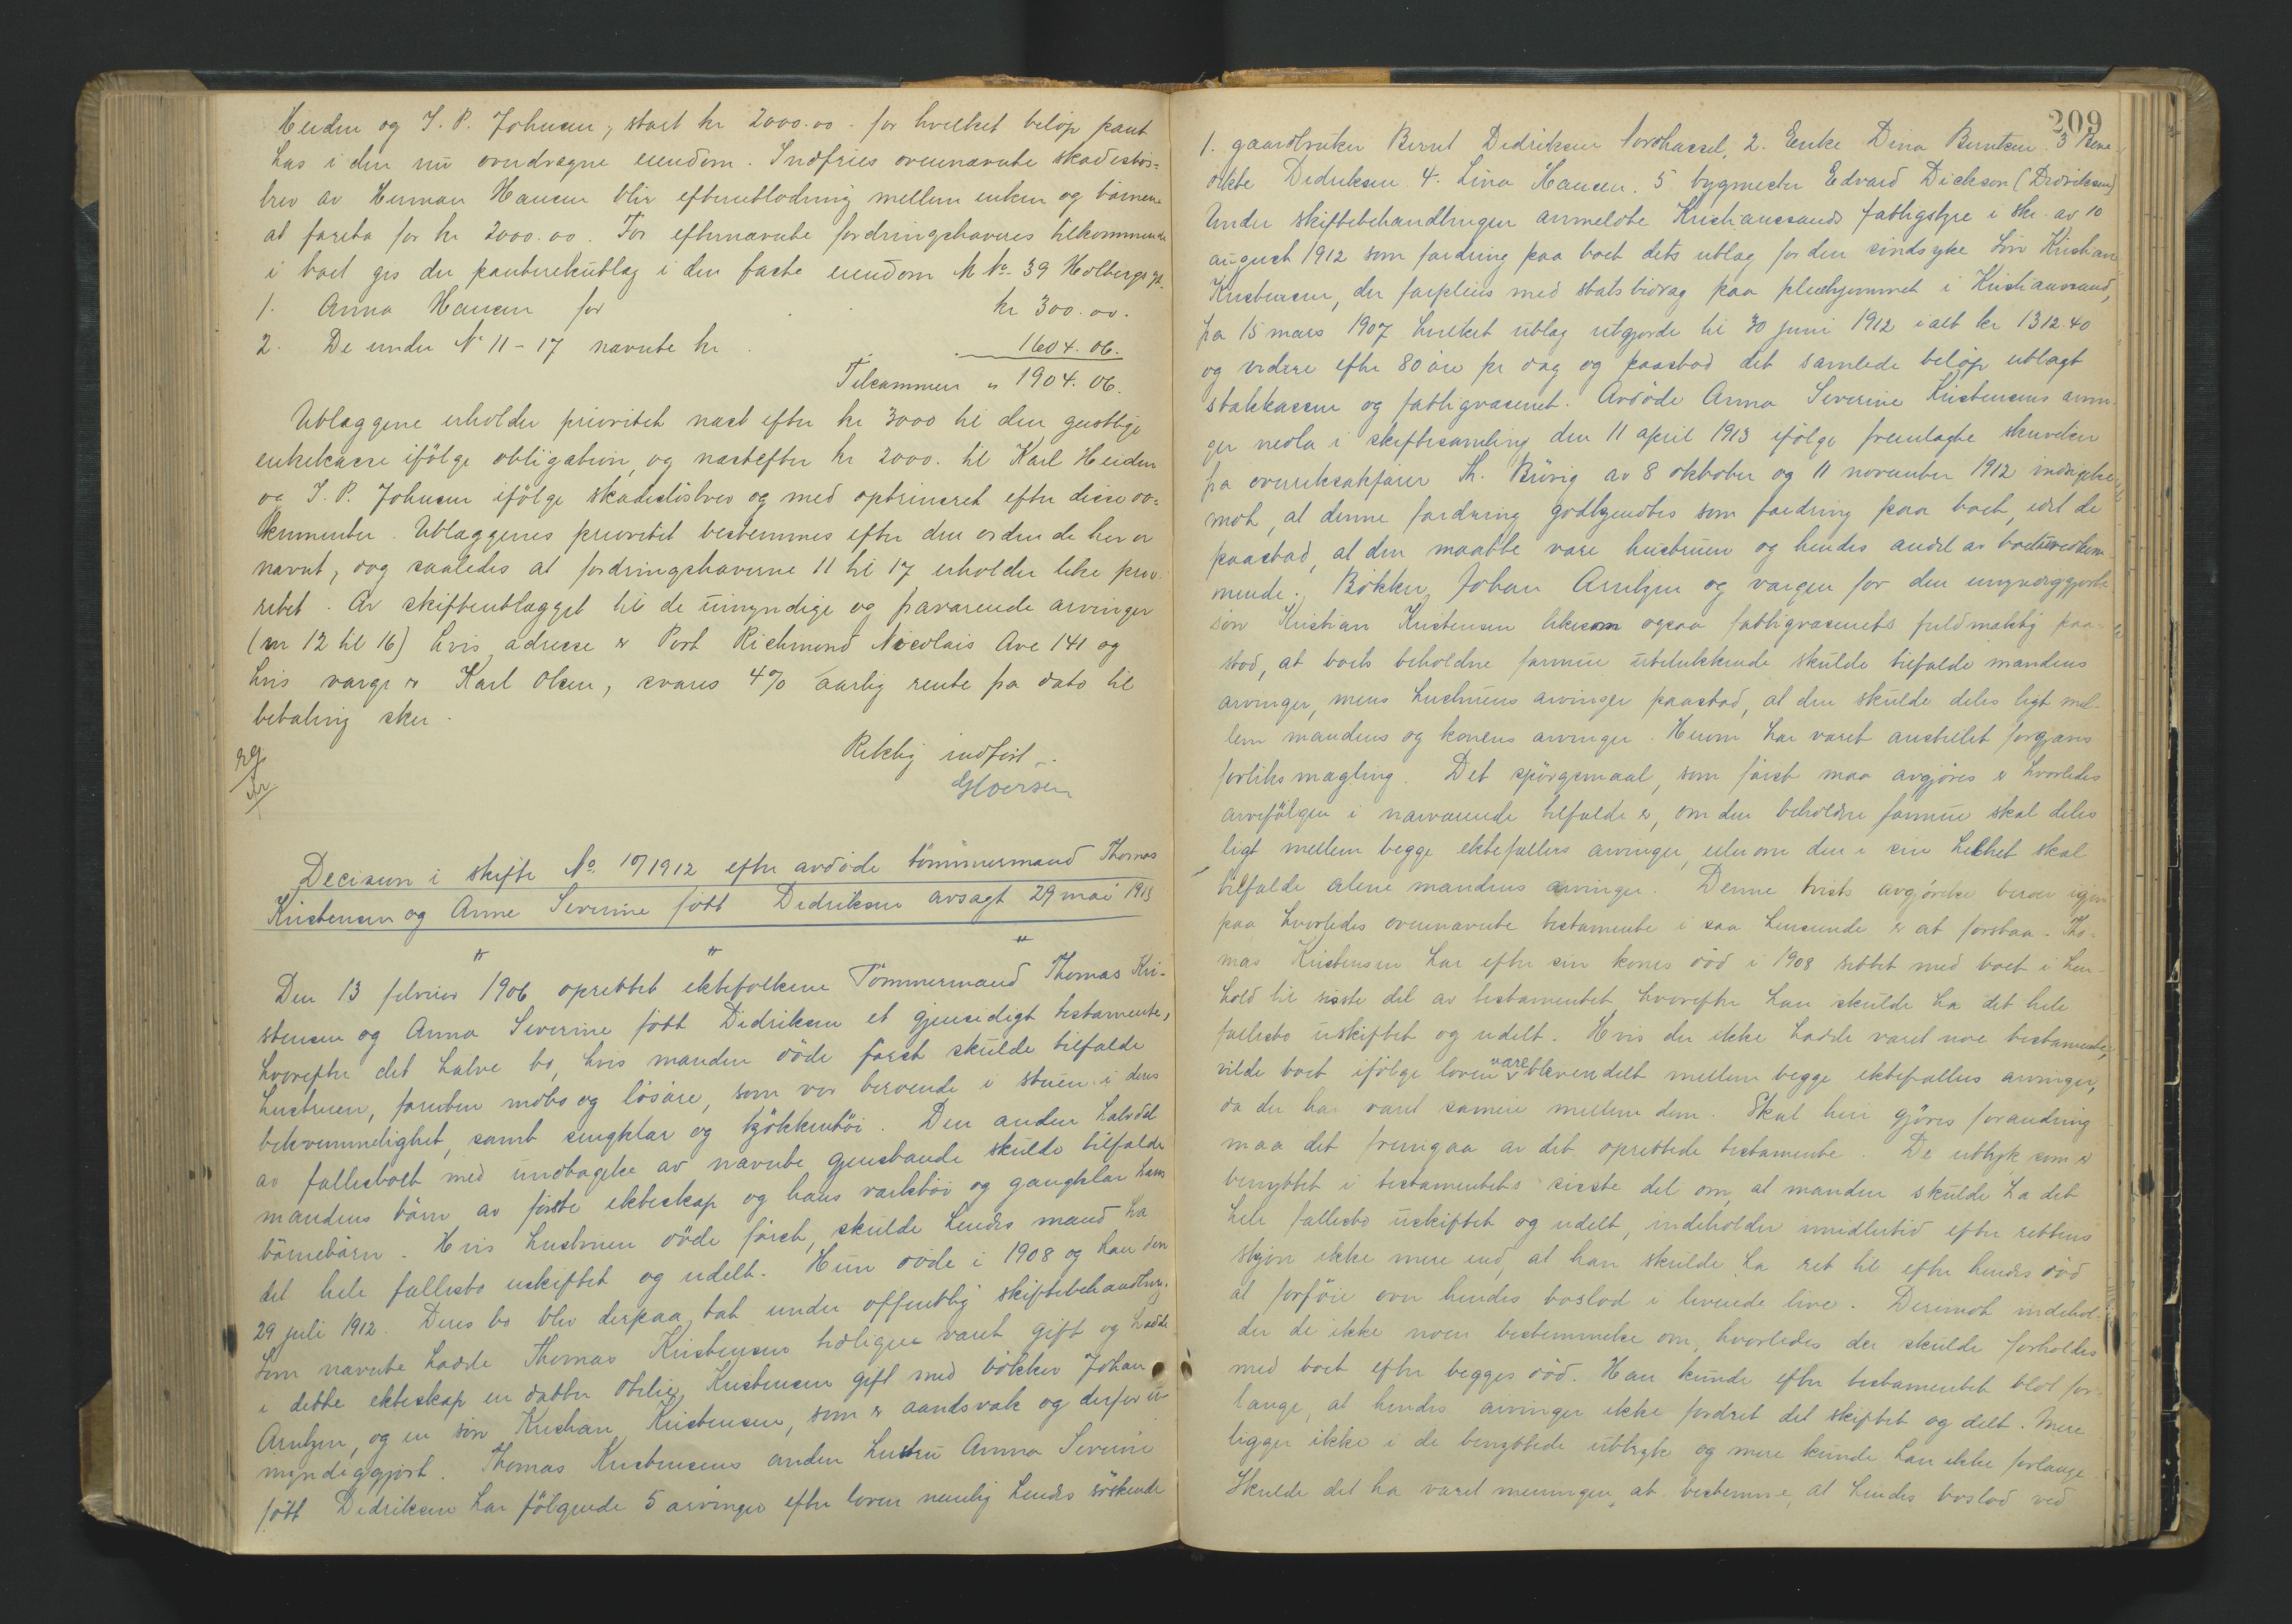 Heiden og I. P. Johnsen, stort kr 2000.00 - for hvilket beløp pant
has i den nu overdragne eiendom. Indfries ovennævnte skadesløs=
brev av Herman Hansen blir efterutlodning mellem enken og børnene
at foreta for kr 2000.00. For efternævnte fordringshaveres tilkommende
i boet gis der panteretutlæg i den faste eiendom M No 39 Holbergsgt.
1. Anna Hansen for kr 300.00.
2. De under No 11-17 nævnte kr 1604.06.
Tilsammen " 1904.06.
Utlæggene erholder prioritet næst efter kr 3000 til den geistlige
enkekasse ifølge obligation, og næstefter kr 2000. til Karl Heiden
og I. P. Johnsen ifølge skadesløsbrev og med optrinsret efter disse do=
kumenter. Utlæggenes prioritet bestemmes efter den orden de her er
nævnt, dog saaledes at fordringshaverne 11 til 17 erholder like prio-
ritet. Av skifteutlægget til de umyndige og fraværende arvinger
(nr 12 til 16) hvis adresse er Port Richmond Nicolais Ave 141 og
hvis værge er Karl Olsen, svares 4% aarlig rente fra dato til
betaling sker.
Riktig indført.
Decision i skifte No 17/1912 efter avdøde tømmermand Thomas
Kristensen og Anne Severine født Didriksen avsagt 29 mai 1913
" " "
Den 13 februar 1906 oprettet ektefolkene Tömmermand Thomas Kri-
stensen og Anna Severine født Didriksen et gjensidigt testamente,
hvorefter det halve bo, hvis manden døde først skulde tilfalde
hustruen, foruten indbo og løsøre, som var beroende i stuen i deres
bekvemmelighet, samt sengklær og kjøkkentøi. Den anden halvdel
av fællesboet med undtagelse av nævnte gjenstande skulde tilfalde
mandens børn av første ekteskap og hans verktøi og gangklær hans
børnebørn. Hvis hustruen døde først, skulde hendes mand ha
det hele fællesbo uskiftet og udelt. Hun døde i 1908 og han den
29 juli 1912. Deres bo blev derpaa tat under offentlig skiftebehandling.
Som nævnte hadde Thomas Kristensen tidligere været gift og hadde
i dette ekteskap en datter Otilie Kristensen gift med bøkker Johan
Arntzen, og en søn Kristian Kristensen, som er aandsvak og derfor u-
myndiggjort. Thomas Kristensens anden hustru Anna Severine
født Didriksen har følgende 5 arvinger efter loven nemlig hendes søskende
209
1. gaardbruker Bernt Didriksen Nordhassel, 2. Enke Dina Berntsen. 3 Bene-
dikte Didriksen. 4. Lina Hansen. 5 bygmester Edvard Dickson (Didriksen)
Under skiftebehandlingen anmeldte Kristianssands fattigstyre i skr. av 10
august 1912 som fordring paa boet dets utlæg for den sindsyke søn Kristian
Kristensen, der forpleies med statsbidrag paa pleiehjemmet i Kristianssand,
fra 15 mars 1907 hvilket utlæg utgjorde til 30 juni 1912 ialt kr 1312.40
og videre efter 80 øre pr dag og paastod det samlede beløp utlagt
statskassen og fattigvæsenet. Avdøde Anna Severine Kristensens arvin-
ger nedla i skiftesamling den 11 april 1913 ifølge fremlagte skrivelser
fra overretssakfører Th. Bürig av 8 oktober og 11 november 1912 indsigelse
mot, at denne fordring godkjendtes som fordring paa boet, idet de
paastod, at den maatte være hustruen og hendes andel av boet uvedkom-
mende. Bøkker Johan Arntzen og værgen for den umyndiggjorte
søn Kristian Kristensen likesom ogsaa fattigvæsenets fuldmæktig paa-
stod, at boets beholdne formue utelukkende skulde tilfalde mandens
arvinger, mens hustruens arvinger paastod, at den skulde deles likt mel-
lem mandens og konens arvinger. Herom har været anstillet forgjæves
forliksmægling. Det spørgsmaal, som først maa avgjøres er hvorledes
arvefølgen i nærværende tilfælde er, om den beholdne formue skal deles
ligt mellem begge ektefællers arvinger, eller om den i sin helhet skal
tilfalde alene mandens arvinger. Denne tvists avgjørelse beror igjen
paa hvorledes ovennævnte testamente i saa henseende er at forstaa. Tho-
mas Kristensen har efter sin kones død i 1908 siddet med boet i hen-
hold til siste del av testamentet hvorefter han skulde ha det hele
fællesbo uskiftet og udelt. Hvis der ikke hadde været noe testamente,
vilde boet ifølge loven være bleven delt mellem begge ektefællers arvinger,
da der har været sameie mellem dem. Skal heri gjøres forandring
maa det fremgaa av det oprettede testamente. De uttryk som er
benyttet i testamentets sisste del om, at manden skulde ha det
hele fællesbo uskiftet og udelt, indeholder imidlertid efter rettens
skjøn ikke mere end, at han skulde ha ret til efter hendes død
at forføie over hendes boslod i levende live. Derimot indehol-
der de ikke noen bestemmelse om, hvorledes der skulde forholdes
med boet efter begges død. Han kunde efter testamentet blot for-
lange, at hendes arvinger ikke fordret det skiftet og delt. Mere
ligger ikke i de benyttede uttryk og mere kunde han ikke forlange.
Skulde det ha været meningen at bestemme, at hendes boslod ved